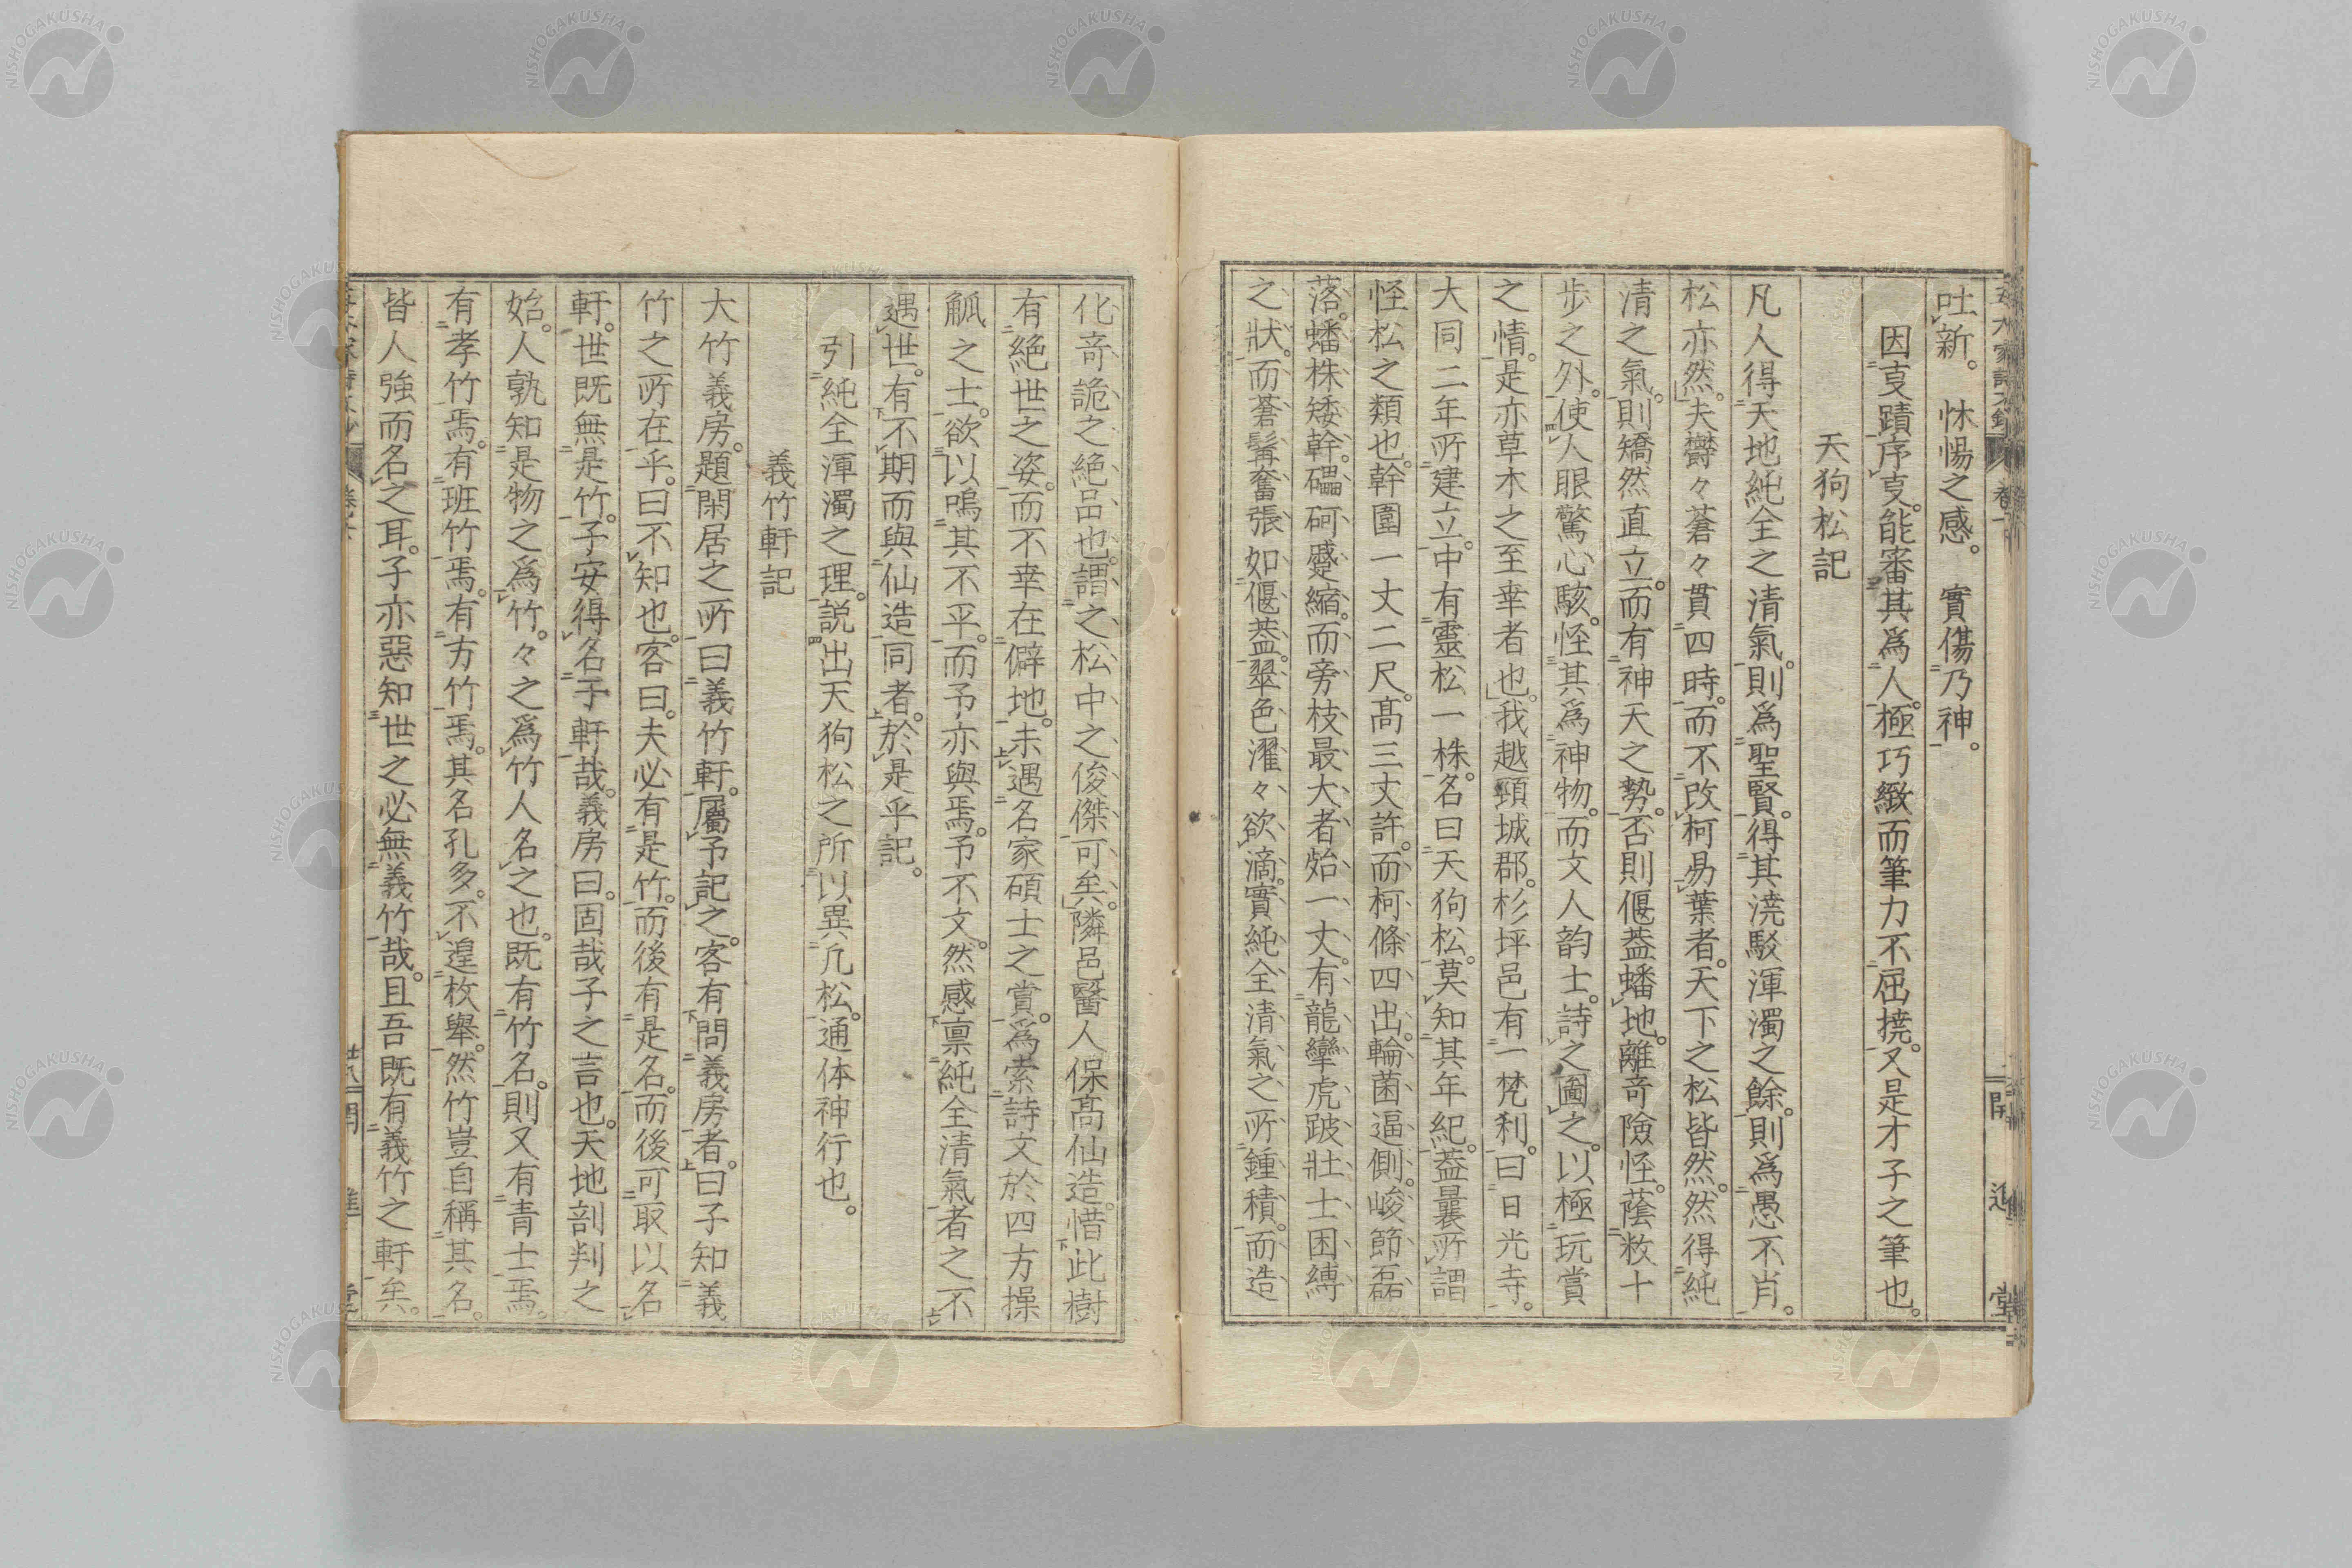 吐新。怵惕之感。實傷乃神。
因叓蹟序叓。能審其爲人。極巧緻而筆力不屈撓。又是才子之筆也。
天狗松記
凡人得天地純全之清氣。則爲聖賢。得其澆駁渾濁之餘。則爲愚不肖。
松亦然。夫欝々蒼々貫四時。而不改柯易葉者。天下之松皆然。然得純
清之氣。則矯然直立。而有神天之勢。否則偃葢蟠地。離竒險恠。蔭敉十
步之外。使人眼驚心駭。恠其爲神物。而文人韵士。詩之圖之。以極玩賞
之情。是亦草木之至幸者也。我越頸城郡。杉坪邑有一梵刹。曰日光寺。
大同二年所建立。中有靈松一株。名曰天狗松。莫知其年紀。葢曩所謂
恠松之類也。幹圍一丈二尺。髙三丈許。而柯條四出。輪菌逼側。峻節磊
落。蟠株矮幹。礧砢蹙縮。而旁枝最大者。殆一丈。有龍攣虎跛壯士困縛
之狀。而蒼髯奮張如偃葢。翠色濯々欲滴。實純全清氣之所鍾積。而造
化竒詭之絶品也。謂之松中之俊傑可矣。隣邑醫人保髙仙造。惜此樹
有絶世之姿。而不幸在僻地。未遇名家碩士之賞。爲索詩文於四方操
觚之士。欲以鳴其不平。而予亦與焉。予不文。然感禀純全清氣者之不
遇世。有不期而與仙造同者。於是乎記。
引純全渾濁之理。説出天狗松之所以異凢松。通体神行也。
義竹軒記
大竹義房。題閑居之所曰義竹軒。屬予記之。客有問義房者。曰子知義
竹之所在乎。曰不知也。客曰。夫必有是竹。而後有是名。而後可取以名
軒。世既無是竹。子安得名予軒哉。義房曰。固哉子之言也。天地剖判之
始。人孰知是物之爲竹。々之爲竹人名之也。既有竹名。則又有青士焉。
有孝竹焉。有班竹焉。有方竹焉。其名孔多。不遑枚舉。然竹豈自稱其名。
皆人強而名之耳。子亦惡知世之必無義竹哉。且吾既有義竹之軒矣。